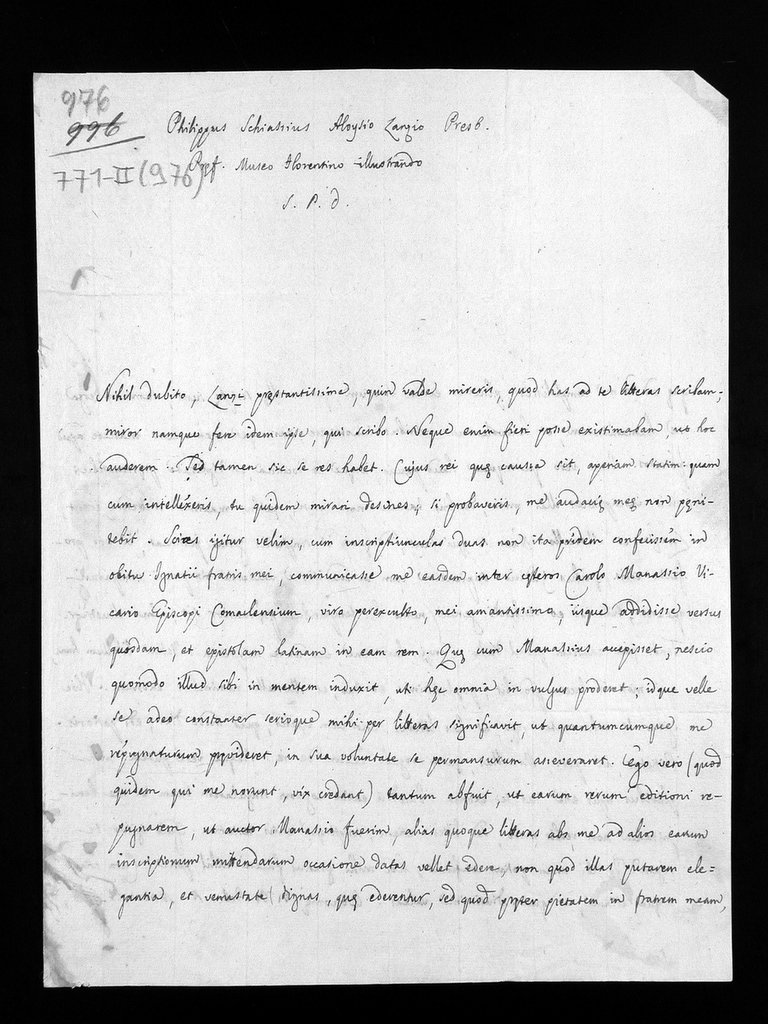 976
996
771-II (976)
Philippus Schiassius Aloysio Lanzio Presb.
Pręf. Museo Florentino illustrando
S. P. D.
Nihil dubito, Lanzi pręstantissime, quin valde mireris, quod has ad te litteras scribam;
miror namque fere idem ipse, qui scribo. Neque enim fieri posse existimabam, ut hoc
auderem. Sed tamen sic se res habet. Cujus rei quę caussa sit, aperiam statim: quam
cum intellexeris, tu quidem mirari desines; si probaveris, me audacię meę non pęni-
tebit. Scias igitur velim, cum inscriptiunculas duas non ita pridem confecissem in
obitu Ignatii fratris mei, communicasse me easdem inter cęteros Carolo Manassio Vi-
cario Episcopi Comaclensium, viro perexculto, mei amantissimo, iisque addidisse versus
quosdam, et epistolam latinam in eam rem. Quę cum Manassius accepisset, nescio
quomodo illud sibi in mentem induxit, uti hęc omnia in vulgus proderet; idque velle
se adeo constanter serioque mihi per litteras significavit, ut quantumcumque me
repugnaturum pręvideret, in sua voluntate se permansurum asseveraret. Ego vero (quod
quidem qui me norunt, vix credant) tantum abfuit, ut earum rerum editioni re-
pugnarem, ut auctor Manassio fuerim, alias quoque litteras abs me ad alios earum
inscriptionum mittendarum occasione datas vellet edere, non quod illas putarem ele=
gantia, et venustate dignas, quę ederentur, sed quod pręter pietatem in fratrem meam,